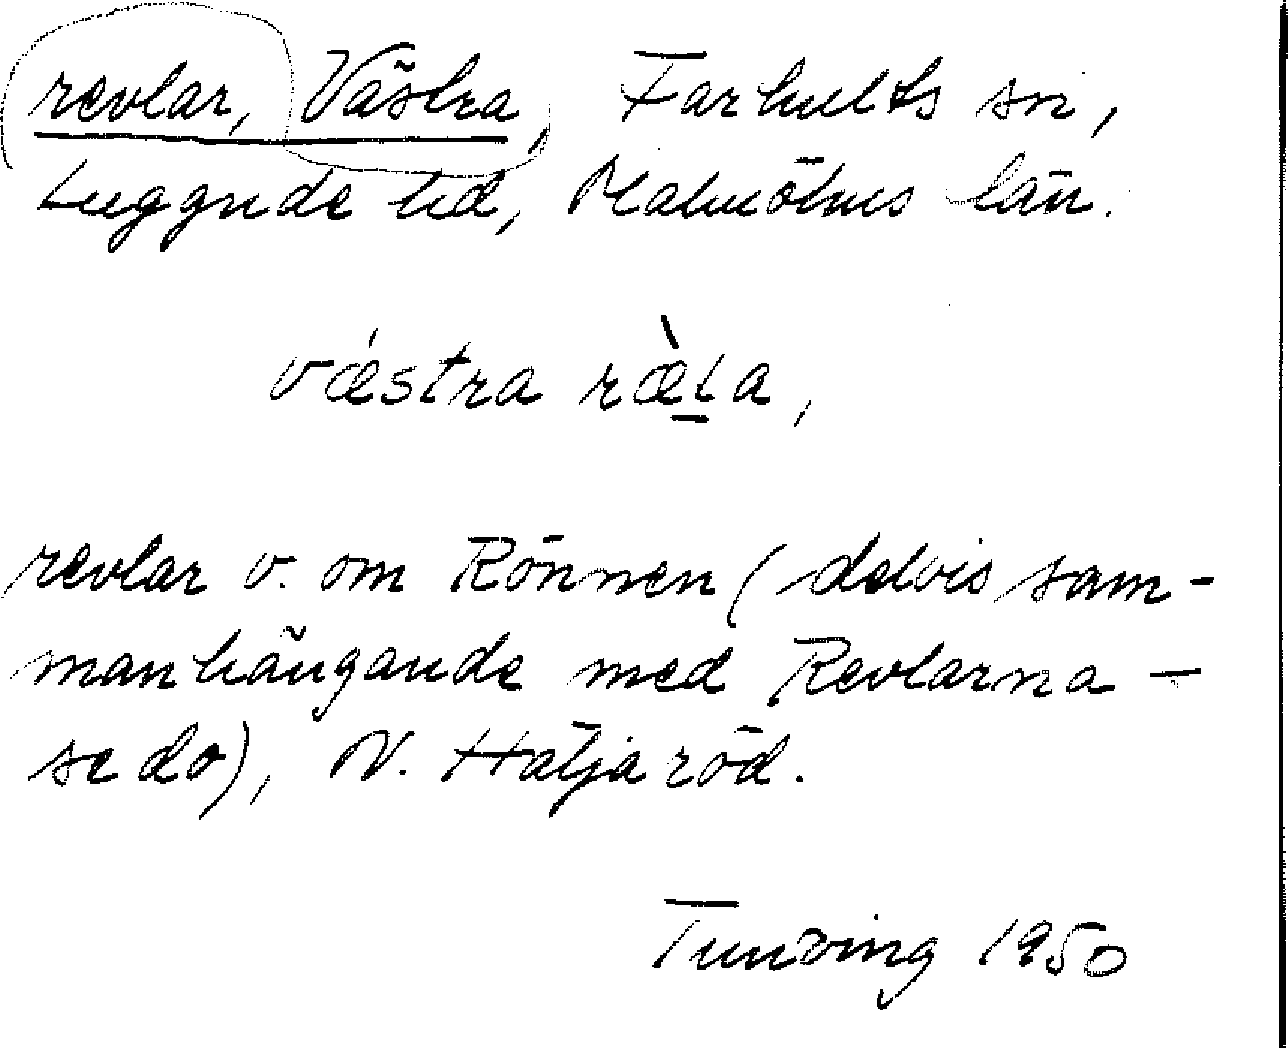 revlar, Västra, Farhults sn,
Luggude hd, Malmöhus län.
væ´stra ræ̀la,
revlar v. om Rönnen (delvis sam-
manhängande med Revlarna –
se do), N. Häljaröd.
Tunving 1950